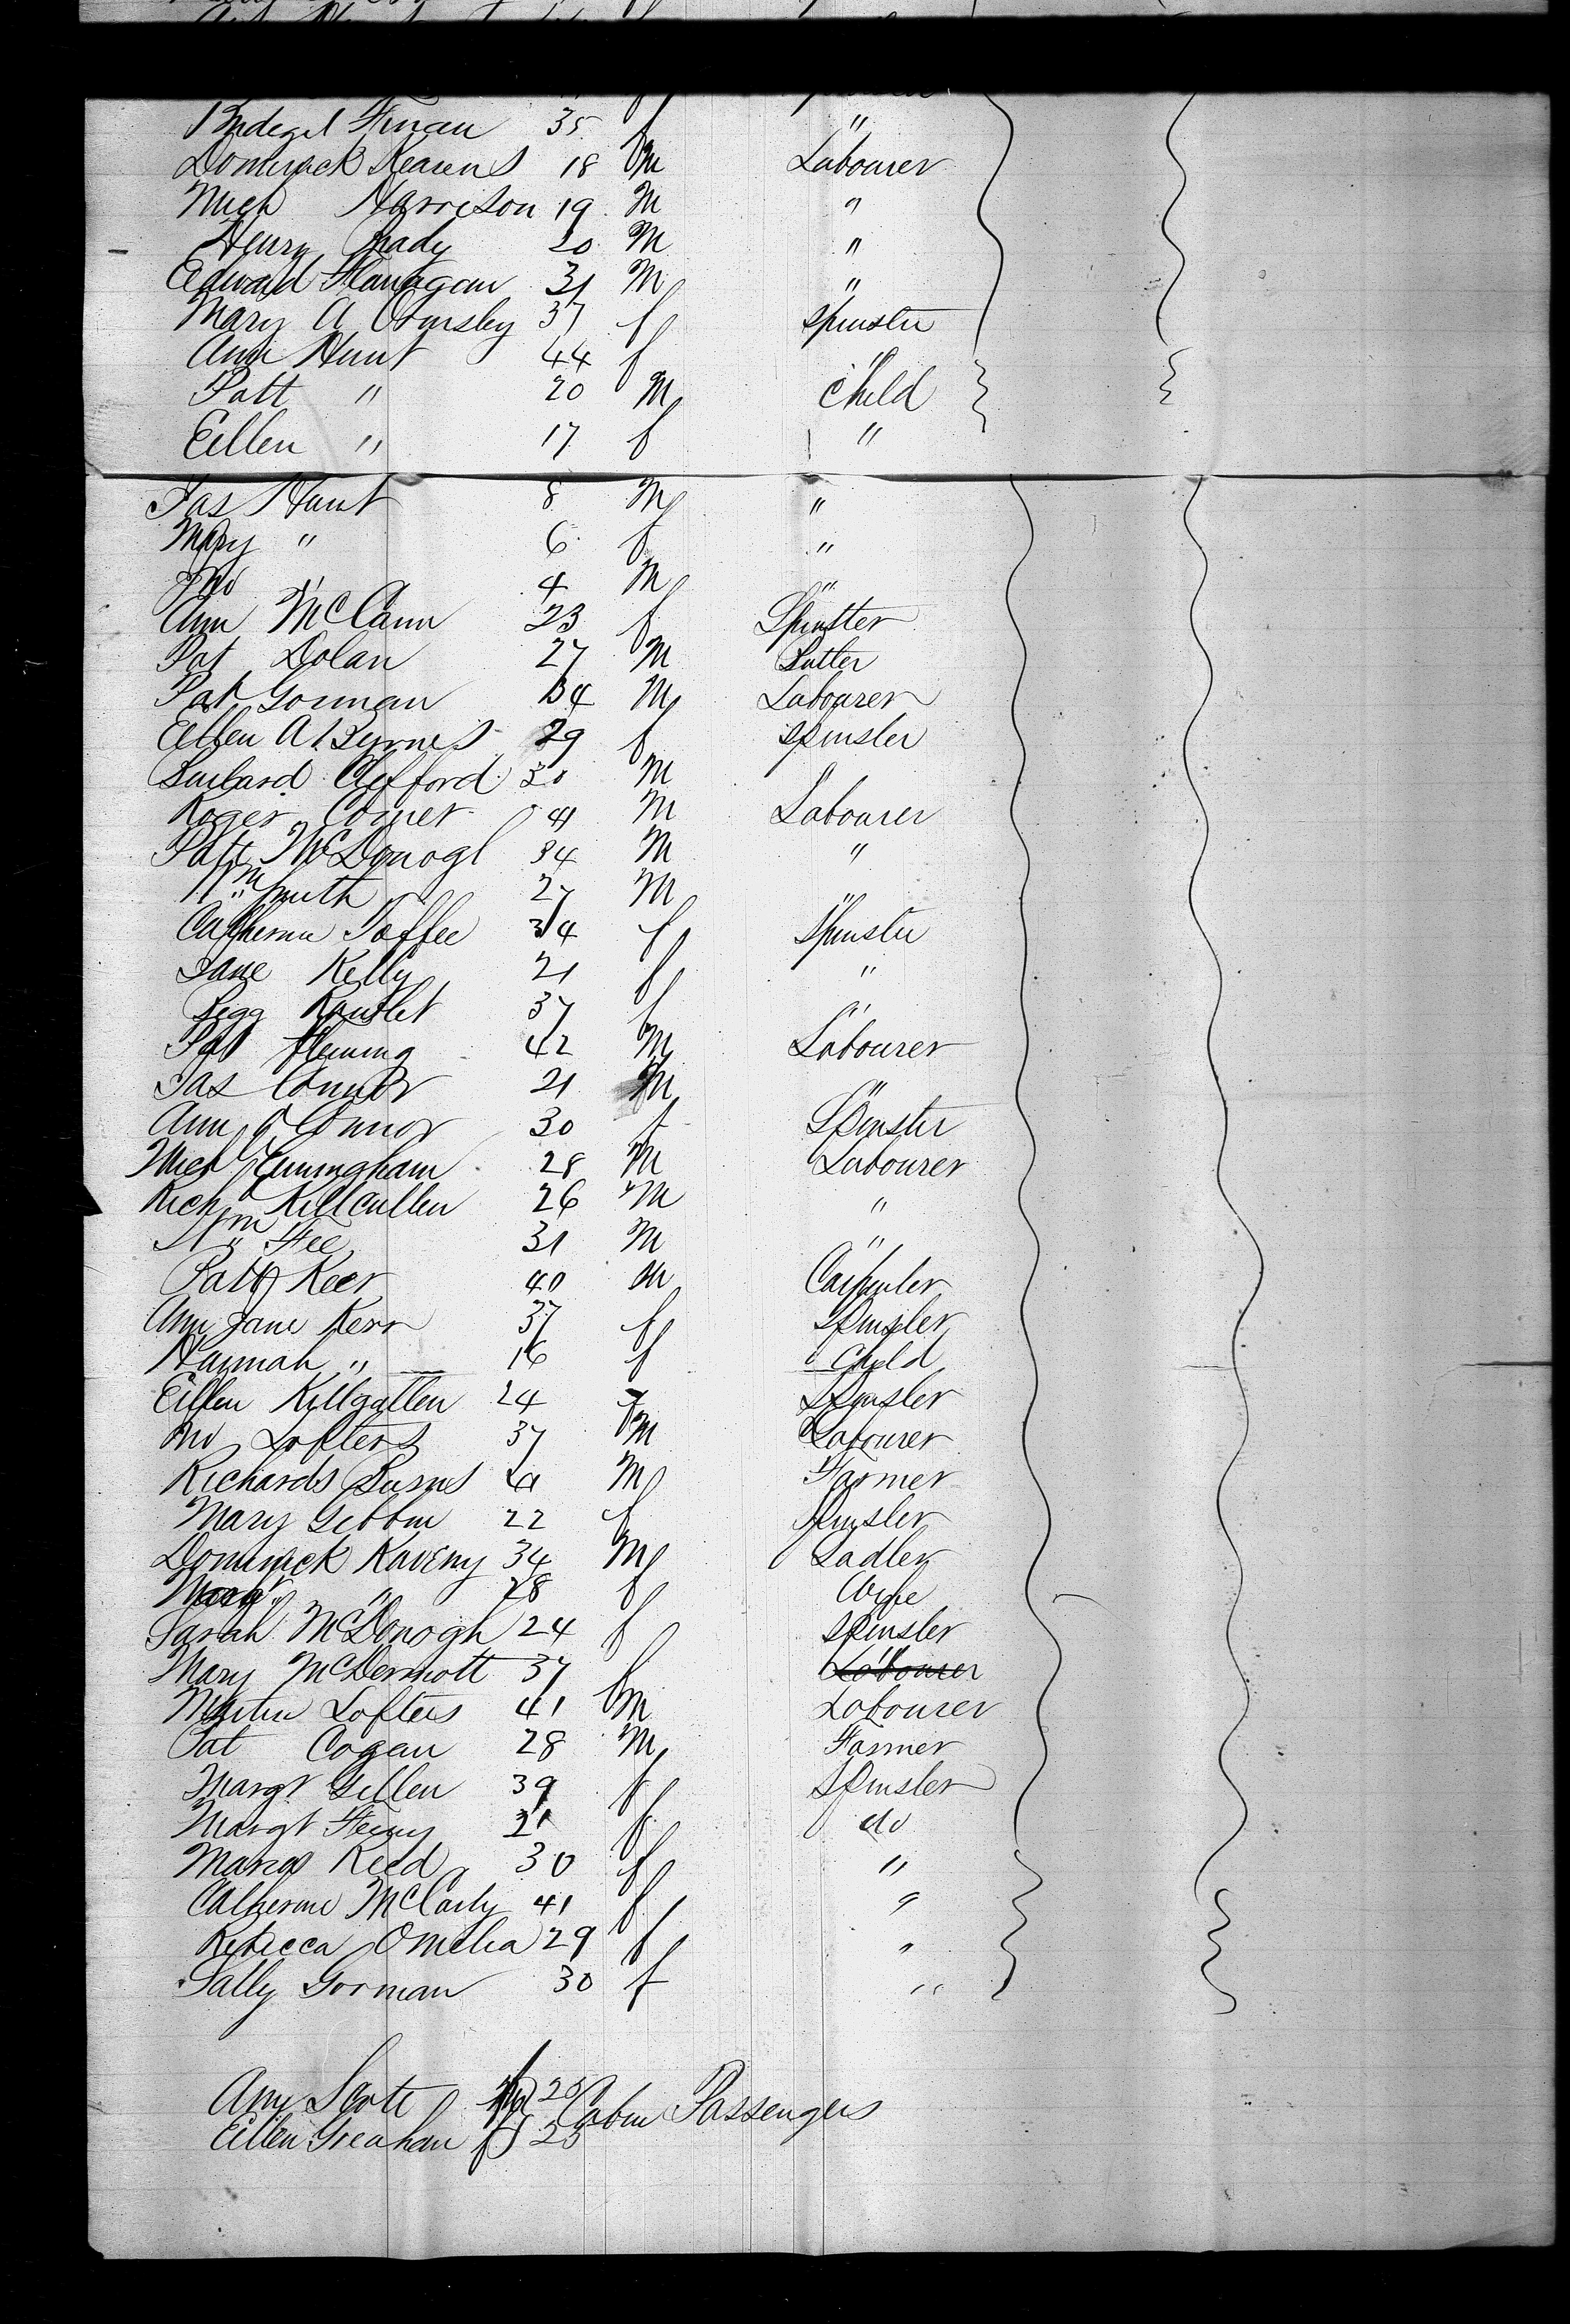 Bridget Finan 35 f "
Dominick Kearns 18 M Labourer
Mich Harrison 19 M "
Henry Grady 20 M "
Edward Flanagan 31 M "
Mary A Ormsby 37 f Spinster
Ann Hunt 44 f "
Patt " 20 M Child
Ellen " 17 f "
Jas Hunt 8 M "
Mary " 6 f "
Jno " 4 M "
Ann McCann 23 f Spinster
Pat Dolan 27 M
Pat Gorman 34 M Labourer
Ellen A Byrnes 29 f Spinster
Clifford 30 M
Roger 41 M Labourer
Patt McDonogh 34 M "
Wm Smith 27 M "
Catherine Taffee 34 f Spinster
Jane Kelly 21 f "
Pegg 37 f "
Pat Fleming 42 M Labourer
Jas Connor 21 M "
Ann O Connor 30 f Spinster
Mich Cuningham 28 M Labourer
Rich Killcullen 26 M "
Wm Fee 31 M "
Patt Keer 40 M Carpenter
Ann Jane Kerr 37 f Spinster
Hannah " 16 f Child
Ellen Killgallen 24 f Spinster
Jno Lofters 37 M Labourer
Richards Burns M Farmer
Mary Gibbin 22 f Spinster
Dominick Kaveny 34 M Sadler
Margt " 28 f Wife
Sarah McDonogh 24 f Spinster
Mary McDermott 37 f "
Martin Lofters 41 M Labourer
Pat Cogan 28 M Farmer
Margt Gillen 39 f Spinster
Margt Feeny 21 f do
Margt Reed 30 f "
Catherine McCarty 41 f "
Rebecca Omelia 29 f "
Sally Gorman 30 f "
Ann Scott f 25 Cabin Passengers
Ellen Greahan f 25